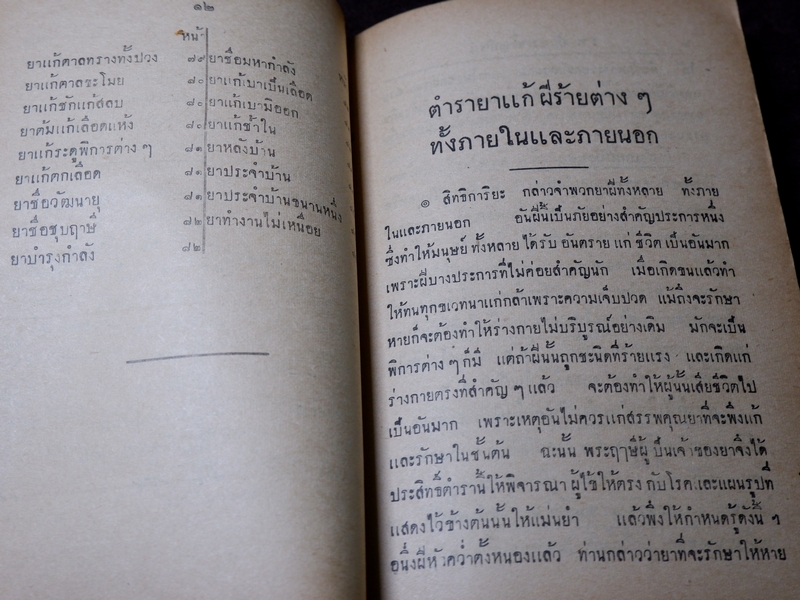 ๑๒
หน้า
ยาแก้ตาลทรางทั้งปวง ๗๙
ยาแก้ตาลขะโมย ๘๐
ยาแก้ชักแก้สลบ ๘๐
ยาต้มแก้เลือดแห้ง ๘๐
ยาแก้ระดูพิการต่าง ๆ ๘๑
ยาแก้ตกเลือด ๘๑
ยาชื่อวัฒนายุ ๘๑
ยาชื่อชุบฤาษี ๘๒
ยาบำรุงกำลัง ๘๒
ยาชื่อมหากำลัง
ยาแก้เบาเป็นเลือด
ยาแก้เบามิออก
ยาแก้ช้ำใน
ยาหลังบ้าน
ยาประจำบ้าน
ยาประจำบ้านขนานหนึ่ง
ยาทำงานไม่เหนื่อย
ตำรายาแก้ ฝีร้ายต่าง ๆ
ทั้งภายในและภายนอก
๏ สิทธิการิยะ กล่าวจำพวกยาฝีทั้งหลาย ทั้งภาย
ในและภายนอก อันฝีนี้เป็นภัยอย่างสำคัญประการหนึ่ง
ซึ่งทำให้มนุษย์ ทั้งหลาย ได้รับ อันตราย แก่ ชีวิต เป็นอันมาก
เพราะฝีบางประการที่ไม่ค่อยสำคัญนัก เมื่อเกิดขนแล้วทำ
ให้ทนทุกขเวทนาแก่กล้าเพราะความเจ็บปวด แม้ถึงจะรักษา
หายก็จะต้องทำให้ร่างกายไม่บริบูรณ์อย่างเดิม มักจะเป็น
พิการต่าง ๆ ก็มี แต่ถ้าฝีนั้นถูกชะนิดที่ร้ายแรง และเกิดแก่
ร่างกายตรงที่สำคัญ ๆ แล้ว จะต้องทำให้ผู้นั้นเสียชีวิตไป
เป็นอันมาก เพราะเหตุอันไม่ควรแก่สรรพคุณยาที่จะพึงแก้
และรักษาในชั้นต้น ฉะนั้น พระฤๅษีผู้ เป็นเจ้าของยาจึงได้
ประสิทธิ์ตำรานี้ ให้พิจารณา ผู้ใช้ให้ตรง กับโรค และแผนรูปที่
แสดงไว้ข้างต้นนั้นให้แม่นยำ แล้วพึงให้กำหนดรู้ดังนี้ ฯ
อนึ่งฝีหัวคว่ำตั้งหนองแล้ว ท่านกล่าวว่ายาที่จะรักษาให้หาย